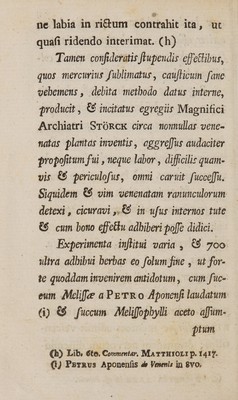 ne labia in rictum contrahit ita, ut
quasi ridendo interimat. (h)
Tamen consideratis stupendis effectibus,
quos mercurius sublimatus, causticum sane
vehemens, debita methodo datus interne,
producit, & incitatus egregiis Magnifici
Archiatri STÖRCK circa nonnullas vene-
natas plantas inventis, aggressus audaciter
propositum sui, neque labor, difficilis quam-
vis & periculosus, omni caruit successu.
Siquidem & vim venenatam ranunculorum
detexi, cicuravi, & in usus internos tute
& cum bono effectu adhiberi posse didici.
Experimenta institui varia, & 700
ultra adhibui herbas eo solum fine, ut for-
te quoddam invenirem antidotum, cum suc-
cum Melissæ a PETRO Aponensi laudatum
(i) & succum Melissophylli aceto assum-
ptum
(h) Lib. 6to. Commentar. MATTHIOLI p. 1417.
(i) PETRUS Aponensis de Venenis in 8vo.